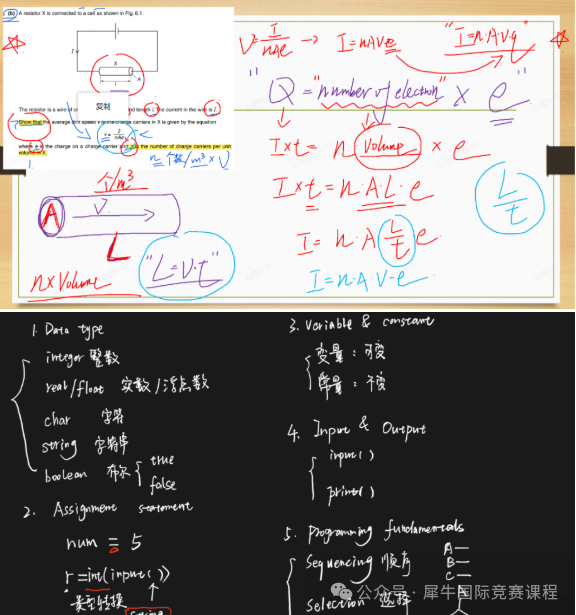 (b) A resistor X is connected to a cell as shown in Fig. 6.1.
I
X
A
l
The resistor is a wire of
length l. The current in the wire is I.
复制
Show that the average drift speed v of the charge carriers in X is given by the equation
v = I / nAe
where e is the charge on a charge carrier and n is the number of charge carriers per unit
volume in X.
n 个数/m³ × V
个/m³
A
V
L
n×Volume
"L=V·t"
V = I/nAe → I=nAve
"I=n·A·V·q"
"Q="number of electron" × e"
I×t = n Volume × e
I×t = n·A·L·e
I = n·A L/t e
I=n·A·V·e
L/t
1. Data type
integer 整数
real/float 实数/浮点数
char 字符
string 字符串
boolean 布尔
true
false
2. Assignment statement
num = 5
r=int(input())
类型转换
string
3. Variable & constant
变量：可变
常量：不变
4. Input & Output
input()
print()
5. Programming fundamentals
Sequencing 顺序
A—
B—
C—
Selection 选择
公众号 · 犀牛国际竞赛课程